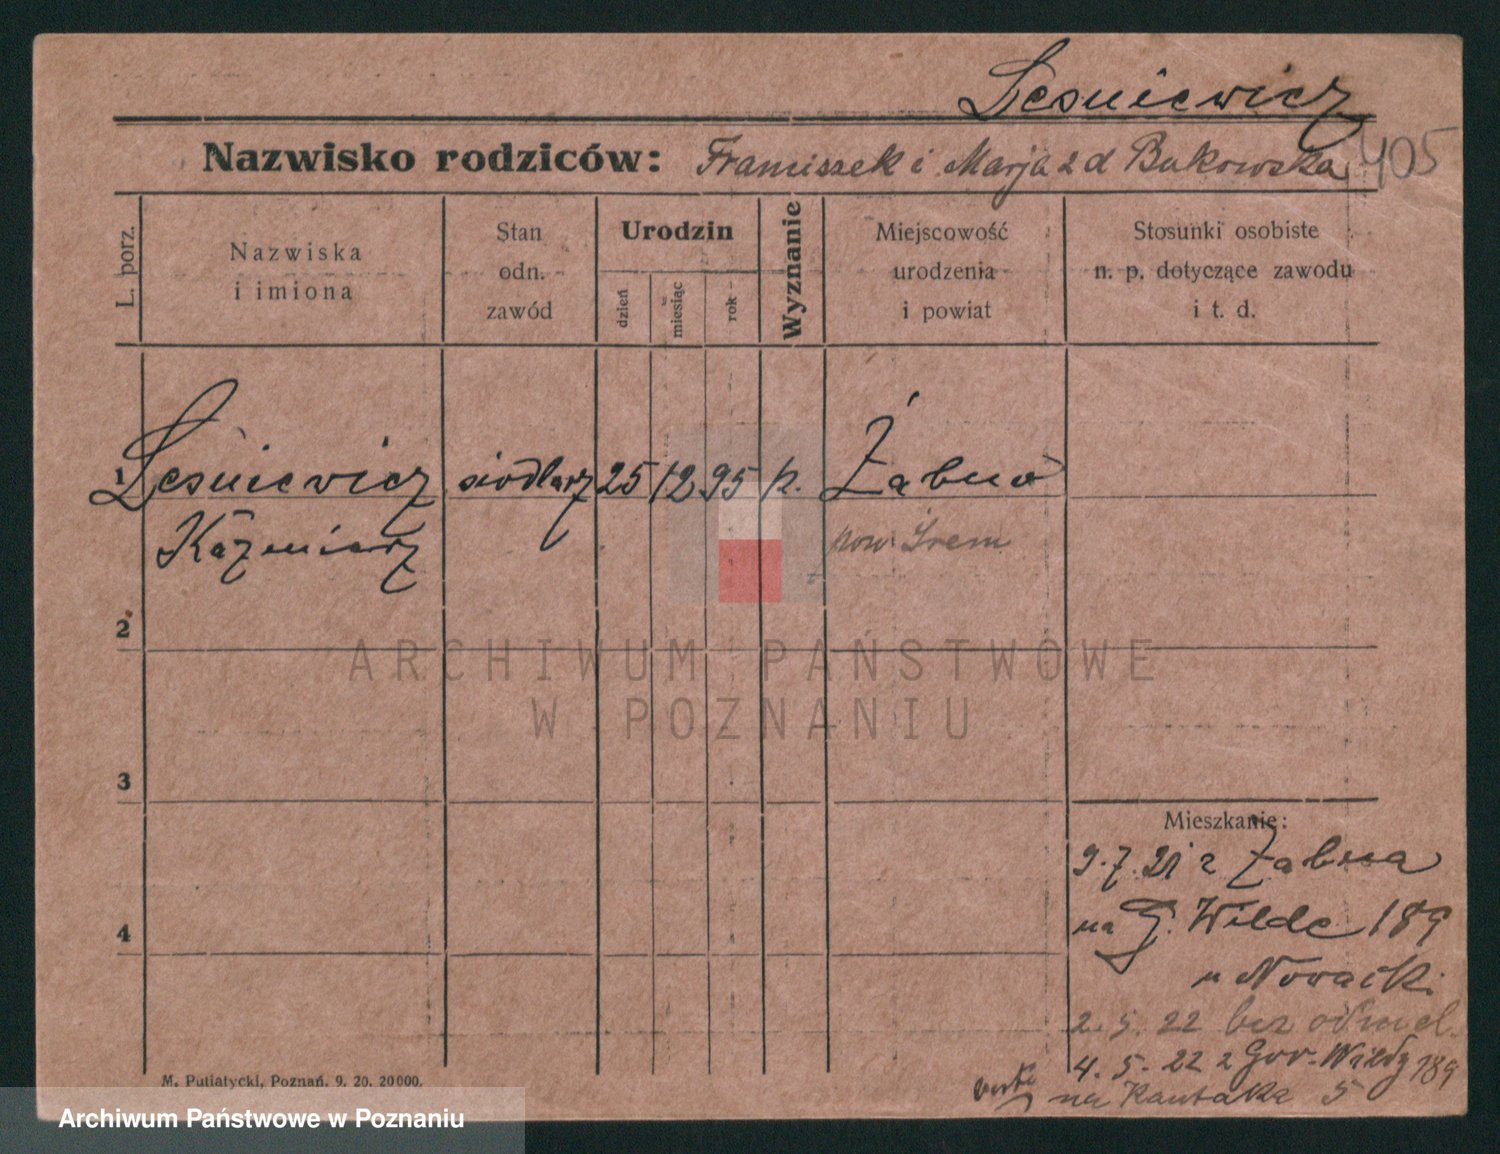 Leśniewicz
Nazwisko rodziców: Franciszek i Marja z d Bukowska
405
L. porz.
Nazwiska
i imiona
Stan
odn.
zawód
Urodzin
dzień
miesiąc
rok
Wyznanie
Miejscowość
urodzenia
i powiat
Stosunki osobiste
n. p. dotyczące zawodu
i t. d.
1 Leśniewicz siodlarz 25 12 95 k. Żabno
Kaźmierz pow. Śrem
2
ARCHIWUM PAŃSTWOWE
W POZNANIU
3
Mieszkanie:
9.7.21 z Żabna
4 na G. Wilde 189
u Nowacki
2.5.22 bez odmel.
4.5.22 z Gór. Wildy 189
na Kantaka 5
M. Putiatycki, Poznań. 9. 20. 20000.
Archiwum Państwowe w Poznaniu